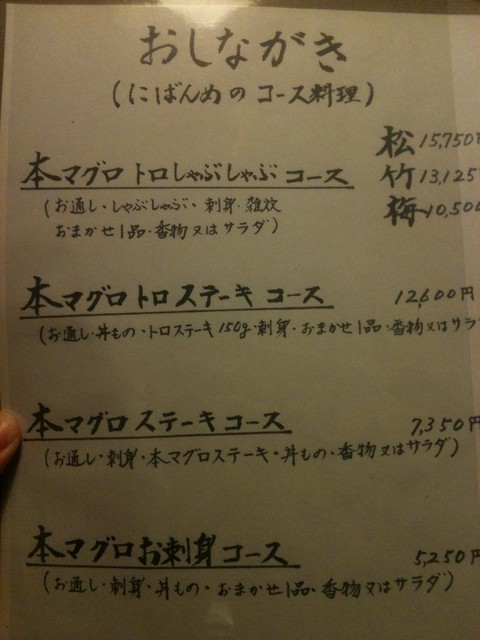 おしながき
(にばんめの コース料理)
松 15,750円
本マグロ トロしゃぶしゃぶ コース 竹 13,125
(お通し・しゃぶしゃぶ・刺身・雑炊 梅 10,500
おまかせ1品・香物又はサラダ)
本マグロトロステーキ コース 12,600円
(お通し・丼もの・トロステーキ150g・刺身・おまかせ1品・香物又はサラ
本マグロステーキコース 7,350円
(お通し・刺身・本マグロステーキ・丼もの・香物又はサラダ)
本マグロお刺身コース 5,250円
(お通し・刺身・丼もの・おまかせ1品・香物又はサラダ)